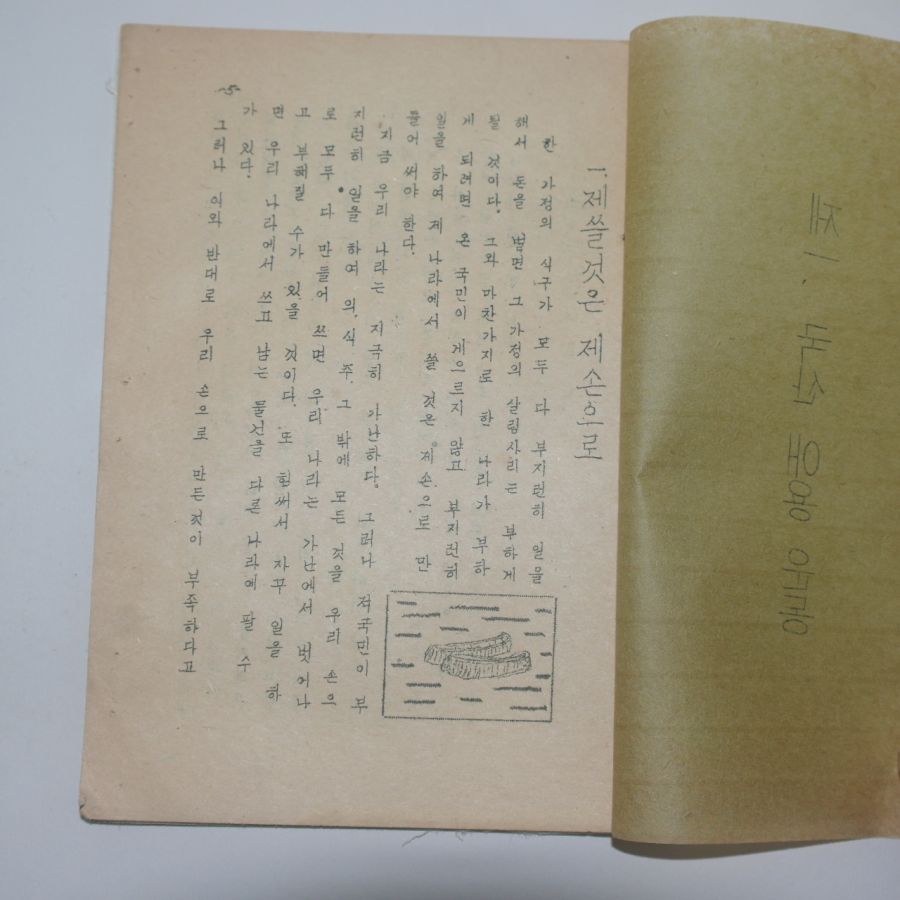 제
一. 제쓸것은 제손으로
한 가정의 식구가 모두 다 부지런히 일을
해서 돈을 벌면 그 가정의 살림사리는 부하게
될 것이다. 그와 마찬가지로 한 나라가 부하
게 되려면 온 국민이 게으르지 않고 부지런히
일을 하여 제 나라에서 쓸 것은 제손으로 만
들어 써야 한다.
지금 우리 나라는 지극히 가난하다. 그러나 저국민이 부
지런히 일을 하여 의.식.주.그 밖에 모든 것을 우리 손으
로 모두 다 만들어 쓰면 우리 나라는 가난에서 벗어나
고 부해질 수가 있을 것이다. 또 힘써서 자꾸 일을 하
면 우리 나라에서 쓰고 남는 물건을 다른 나라에 팔 수
가 있다.
그러나 이와 반대로 우리 손으로 만든것이 부족하다고
-5-